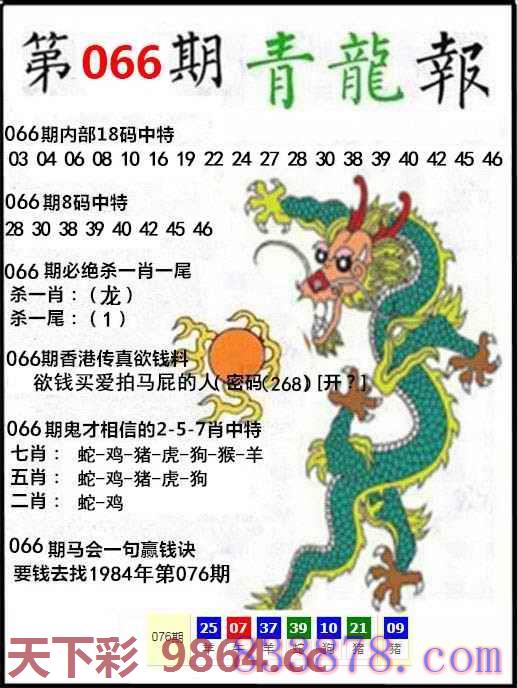 第066期青龍報
066期内部18码中特
03 04 06 08 10 16 19 22 24 27 28 30 38 39 40 42 45 46
066期8码中特
28 30 38 39 40 42 45 46
066期必绝杀一肖一尾
杀一肖：（龙）
杀一尾：（1）
066期香港传真欲钱料
欲钱买爱拍马屁的人(密码(268)[开？]
066期鬼才相信的2-5-7肖中特
七肖： 蛇-鸡-猪-虎-狗-猴-羊
五肖： 蛇-鸡-猪-虎-狗
二肖： 蛇-鸡
066期马会一句赢钱诀
要钱去找1984年第076期
076期 25 07 37 39 10 21 09
羊 牛 羊 蛇 狗 猪 猪
天下彩 9864.cc